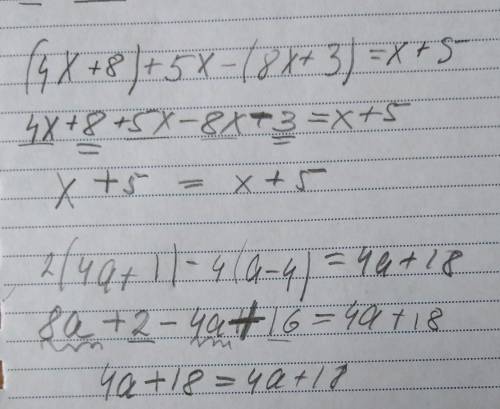 (4x+8)+5x-(8x+3)=x+5
4x+8+5x-8x-3=x+5
x+5 = x+5
2(4a+1)-4(a-4)=4a+18
8a+2-4a+16=4a+18
4a+18=4a+18